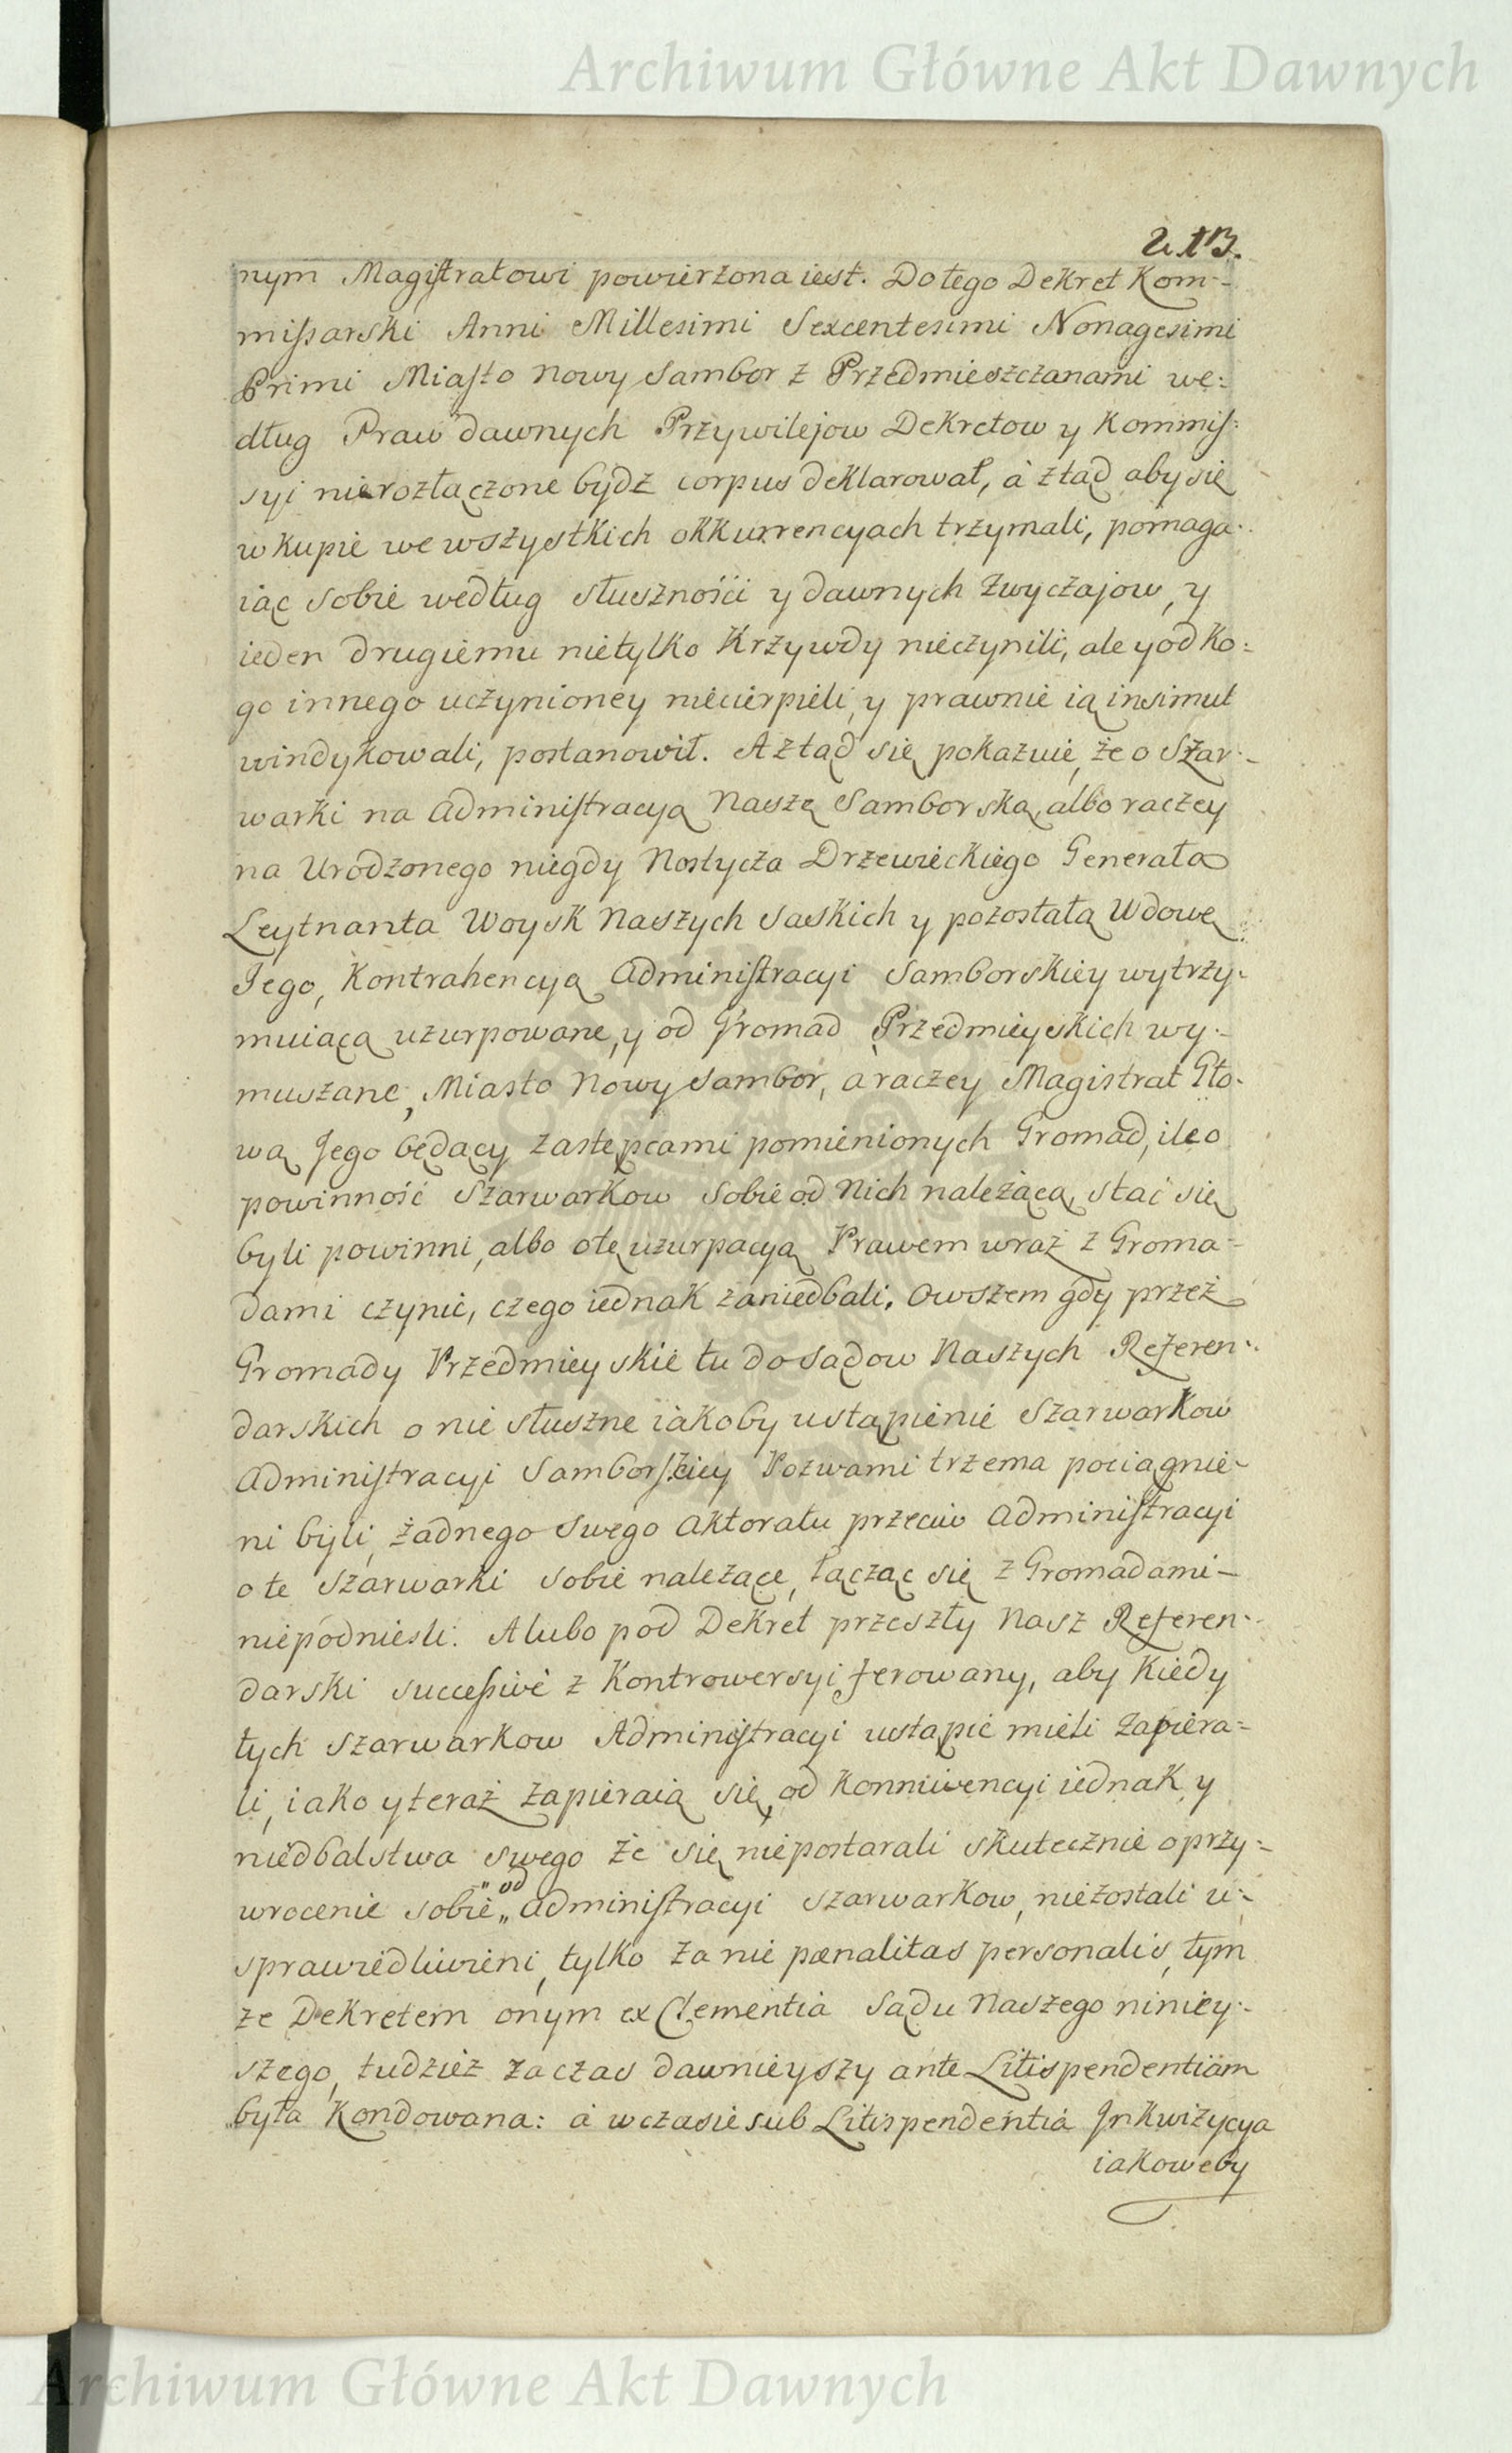 Archiwum Główne Akt Dawnych
213.
nym Magistratowi powierzona iest. Do tego Dekret Kom-
missarski Anni Millesimi Sexcentesimi Nonagesimi
Primi Miasto Nowy Sambor z Przedmieszczanami we:
dług Praw dawnych Przywilejow Dekretow y Kommis:
syi nierozłączone bydz corpus deklarował, á ztąd aby się
w kupie we wszystkich okkurrencyach trzymali, pomaga-
iąc sobie według słusznośći y dawnych zwyczajow, y
ieden drugiemu nietylko Krzywdy nieczynili, ale y od Ko:
go innego uczynioney niecierpieli, y prawnie ią insimul
windykowali, postanowił. A ztąd się pokazuie, że o Szar-
warki na Administracyą Naszę Samborską, albo raczey
na Urodzonego niegdy Nostycza Drzewieckiego Generała
Leytnanta Woysk Naszych Saskich y pozostałą Wdowę
Jego, Kontrahencyą Administracyi Samborskiey wytrzy-
muiącą uzurpowane, y od Gromad Przedmieyskich wy-
muszane, Miasto Nowy Sambor, á raczey Magistrat Gło-
wą Jego będący zastępcami pomienionych Gromad, ile o
powinność Szarwarkow sobie od Nich należącą, stać się
byli powinni, albo o tę uzurpacyą Prawem wraz z Groma-
dami czynić, czego iednak zaniedbali. Owszem gdy przez
Gromady Przedmieyskie tu do Sądow Naszych Referen-
darskich o nie słuszne iakoby ustąpienie Szarwarkow
Administracyi Samborskiey Pozwami trzema pociągnie-
ni byli, żadnego swego Aktoratu przeciw Administracyi
o te Szarwarki sobie należące, łącząc się z Gromadami-
niepodniesli. A lubo pod Dekret przeszły Nasz Referen-
darski successivé z Kontrowersyi ferowany, aby Kiedy
tych Szarwarkow Administracyi ustąpić mieli zapiera-
li, iako y teraz zapieraią się, od Konniwencyi iednak y
niedbalstwa swego że się niepostarali skutecznie o przy-
wrocenie sobie od Administracyi Szarwarkow, niezostali u-
sprawiedliwieni, tylko za nie pœnalitas personalis, tym
że Dekretem onym ex Clementia Sądu Naszego niniey-
szego, tudziez za czas dawnieyszy ante Litispendentiam
była Kondowana: á w czasie sub Litispendentiá Jnkwizycya
iakoweby
Archiwum Główne Akt Dawnych